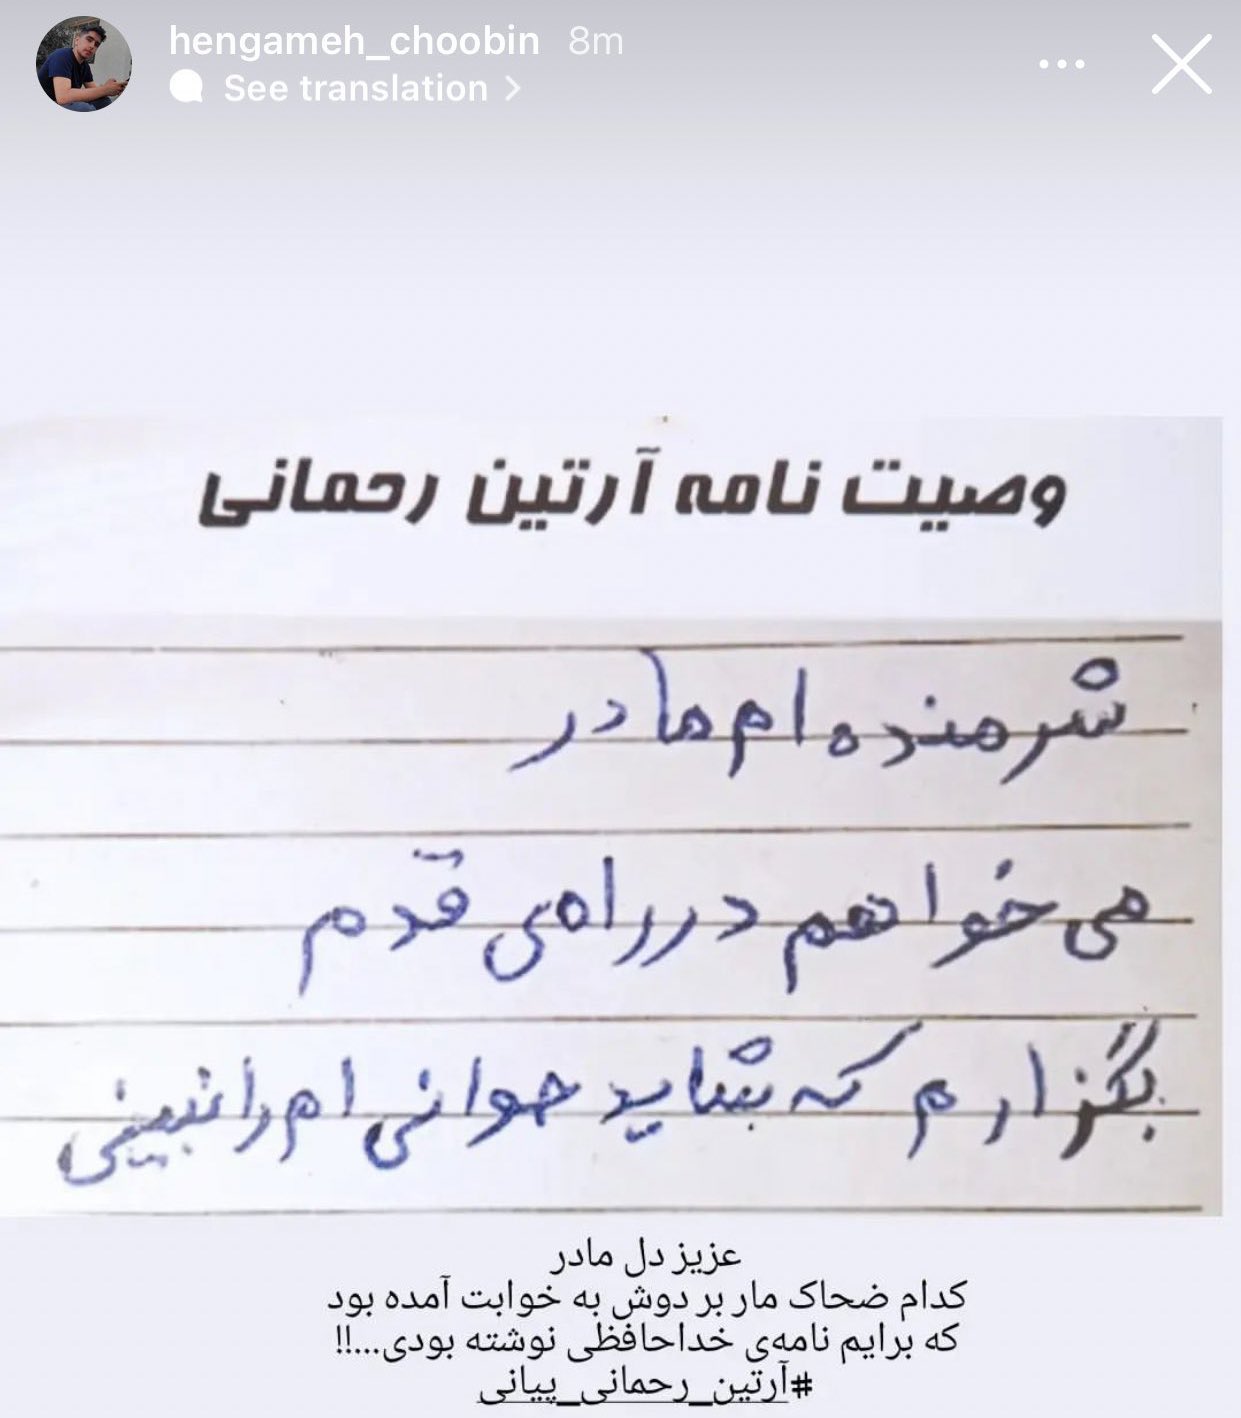 hengameh_choobin 8m
See translation
وصیت نامه آرتین رحمانی
شرمنده ام مادر
می خواهم در راه‌ی قدم
بگزارم که شاید جوانی ام را نبینی
عزیز دل مادر
کدام ضحاک مار بر دوش به خوابت آمده بود
که برایم نامه‌ی خداحافظی نوشته بودی...!!
#آرتین_رحمانی_پیانی